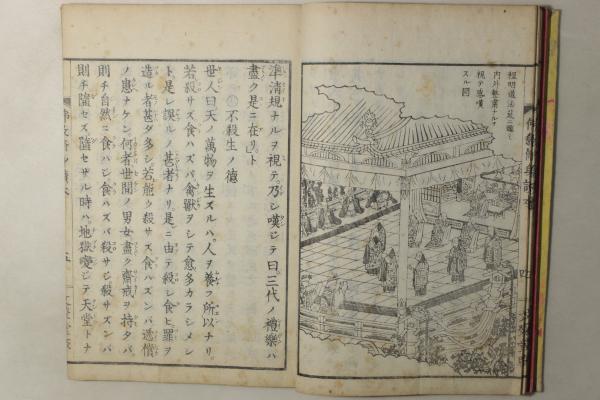 程明道法莚ニ臨ミ
内外粛粛ナルヲ
視テ感嘆
スル図
準清規ナルヲ視テ乃シ嘆ジテ曰三代ノ禮樂ハ
盡ク是ニ在リト
不殺生ノ德
世人曰天ノ萬物ヲ生ズルハ人ヲ養フ所以ナリ
若殺サズ食ハズバ禽獸ヲシテ愈多カラシメン
ト是レ誤ルノ甚者ナリ是ニ由テ殺シ食ヒ罪ヲ
造ル者甚ダ多シ若能ク殺サズ食ハズンバ還償
ノ患ナケン何者世間ノ男女盡ク齋戒ヲ持タバ
則チ自然ニ食ハジ食ハズバ殺サジ殺サジ
則チ墮セズ墮セザル時ハ地獄變ジテ天堂トナ